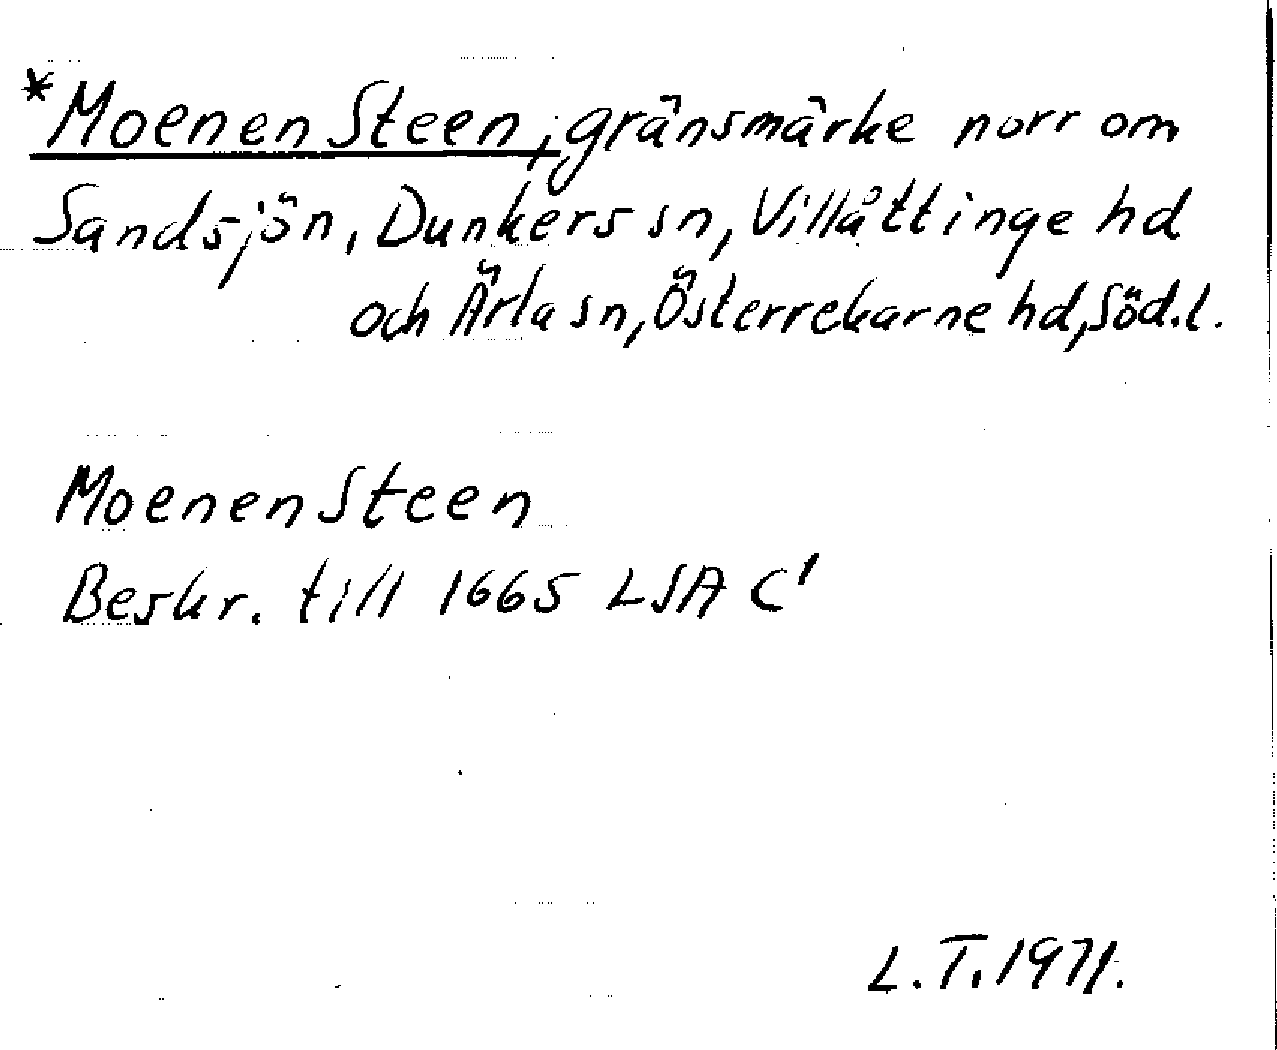 *Moenen Steen, gränsmärke norr om
Sandsjön, Dunkers sn, Villåttinge hd
och Ärla sn, Österrekarne hd, Söd.l.
Moenen Steen
Beskr. till 1665 LSA C'
L.T. 1971.